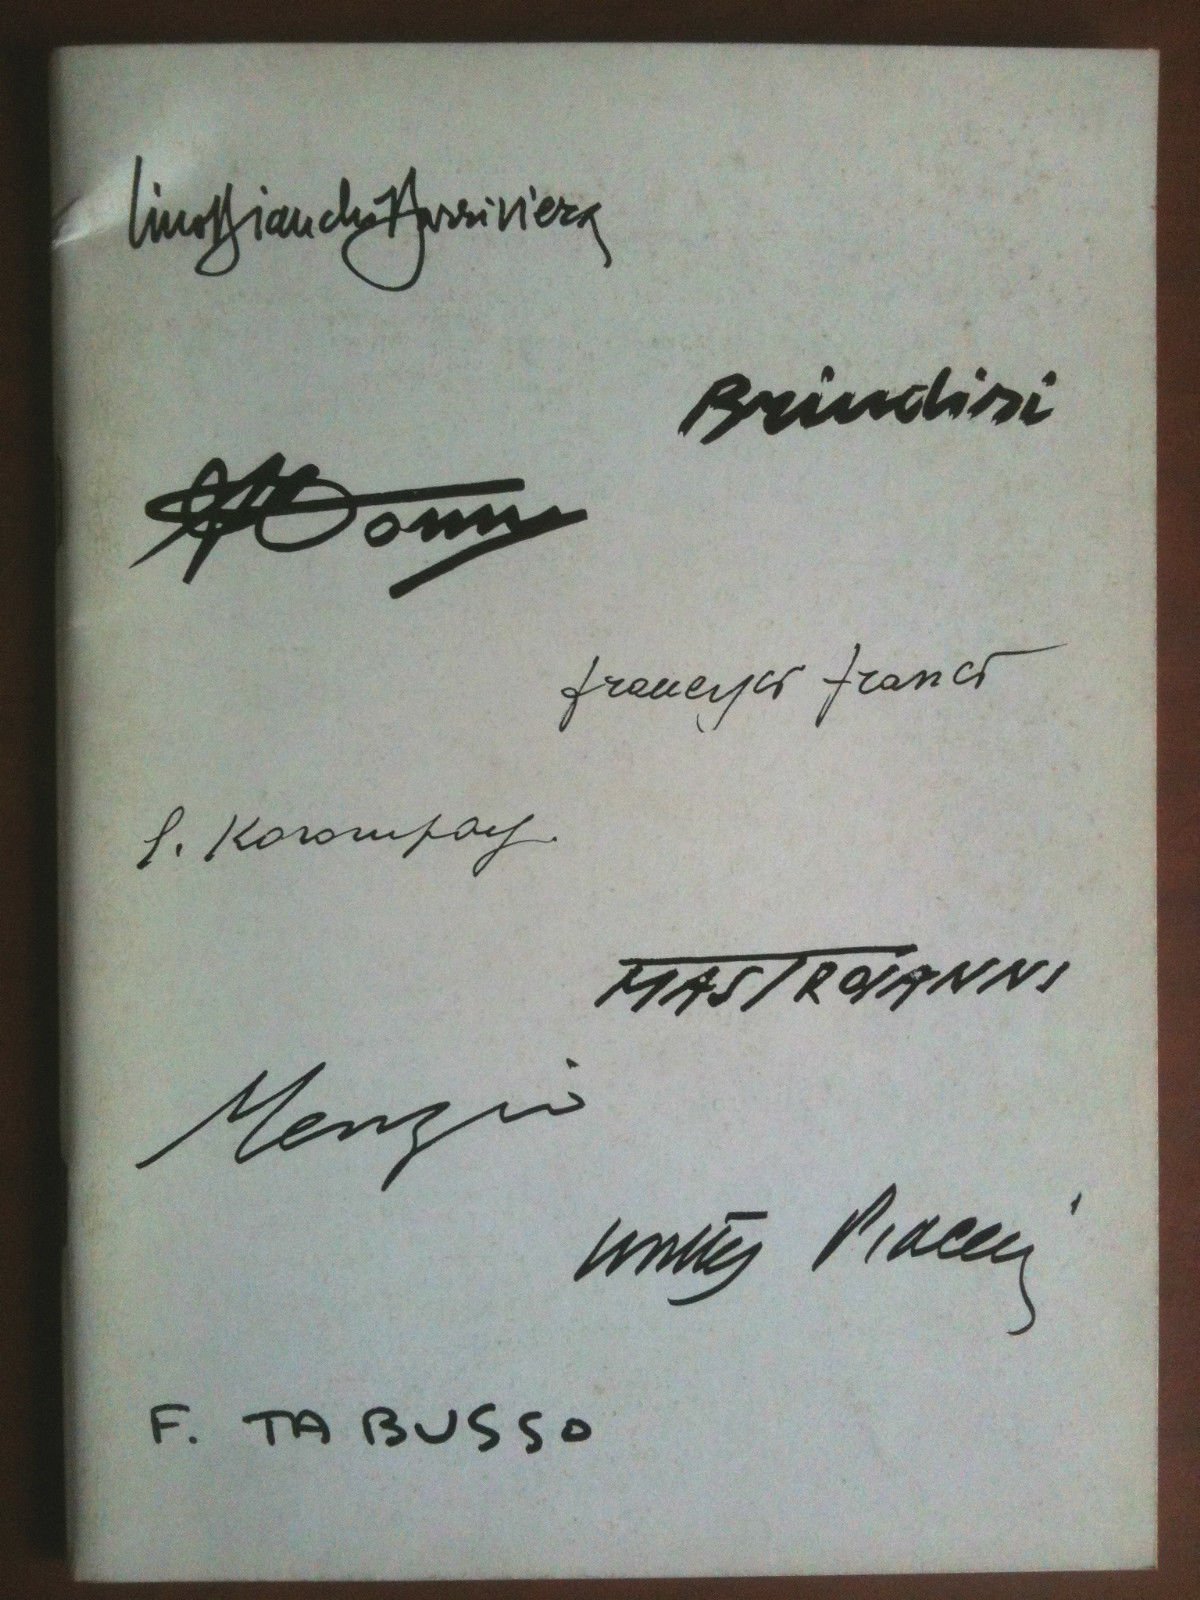 Lino Bianchi Barriviera
Brindisi
Francesco Franco
G. Korompay
MASTROIANNI
Menzio
Walter Piacesi
F. TABUSSO